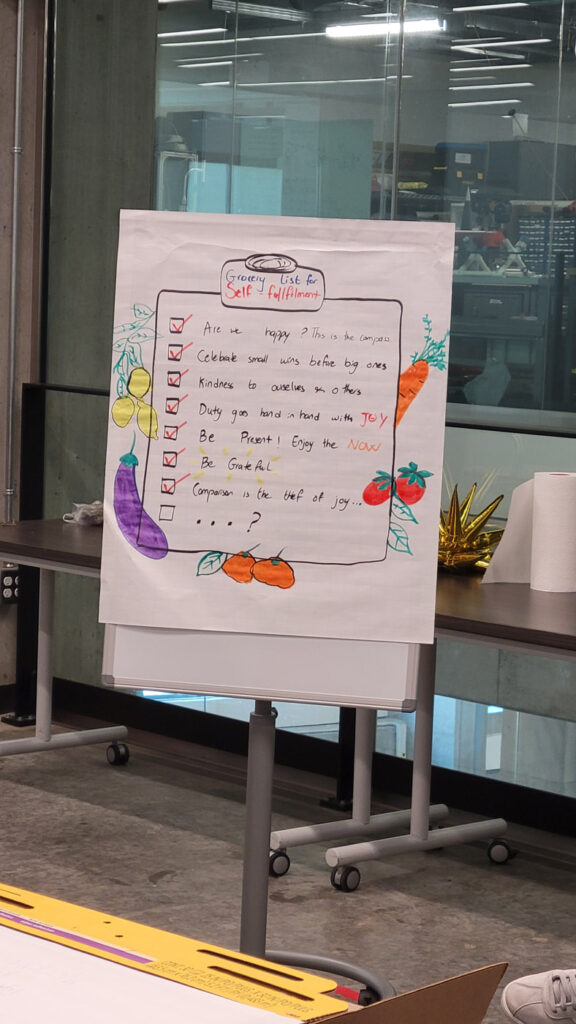 Grocery List for
Self-fullfilment
Are we happy ? This is the compass
Celebrate small wins before big ones
Kindness to ourselves & others
Duty goes hand in hand with JOY
Be Present! Enjoy the NOW
Be Grateful
Comparison is the thef of joy...
... ?